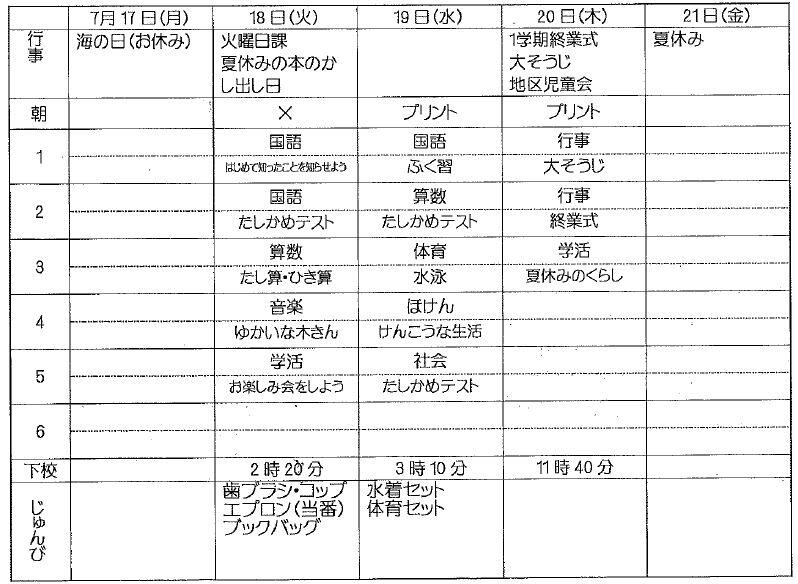 7月17日(月) 18日(火) 19日(水) 20日(木) 21日(金)
行事 海の日(お休み) 火曜日課 1学期終業式 夏休み
夏休みの本のか 大そうじ
し出し日 地区児童会
朝 × プリント プリント
1 国語 国語 行事
はじめて知ったことを知らせよう ふく習 大そうじ
2 国語 算数 行事
たしかめテスト たしかめテスト 終業式
3 算数 体育 学活
たし算・ひき算 水泳 夏休みのくらし
4 音楽 ほけん
ゆかいな木きん けんこうな生活
5 学活 社会
お楽しみ会をしよう たしかめテスト
6
下校 2時20分 3時10分 11時40分
じゅんび 歯ブラシ・コップ 水着セット
エプロン(当番) 体育セット
ブックバッグ